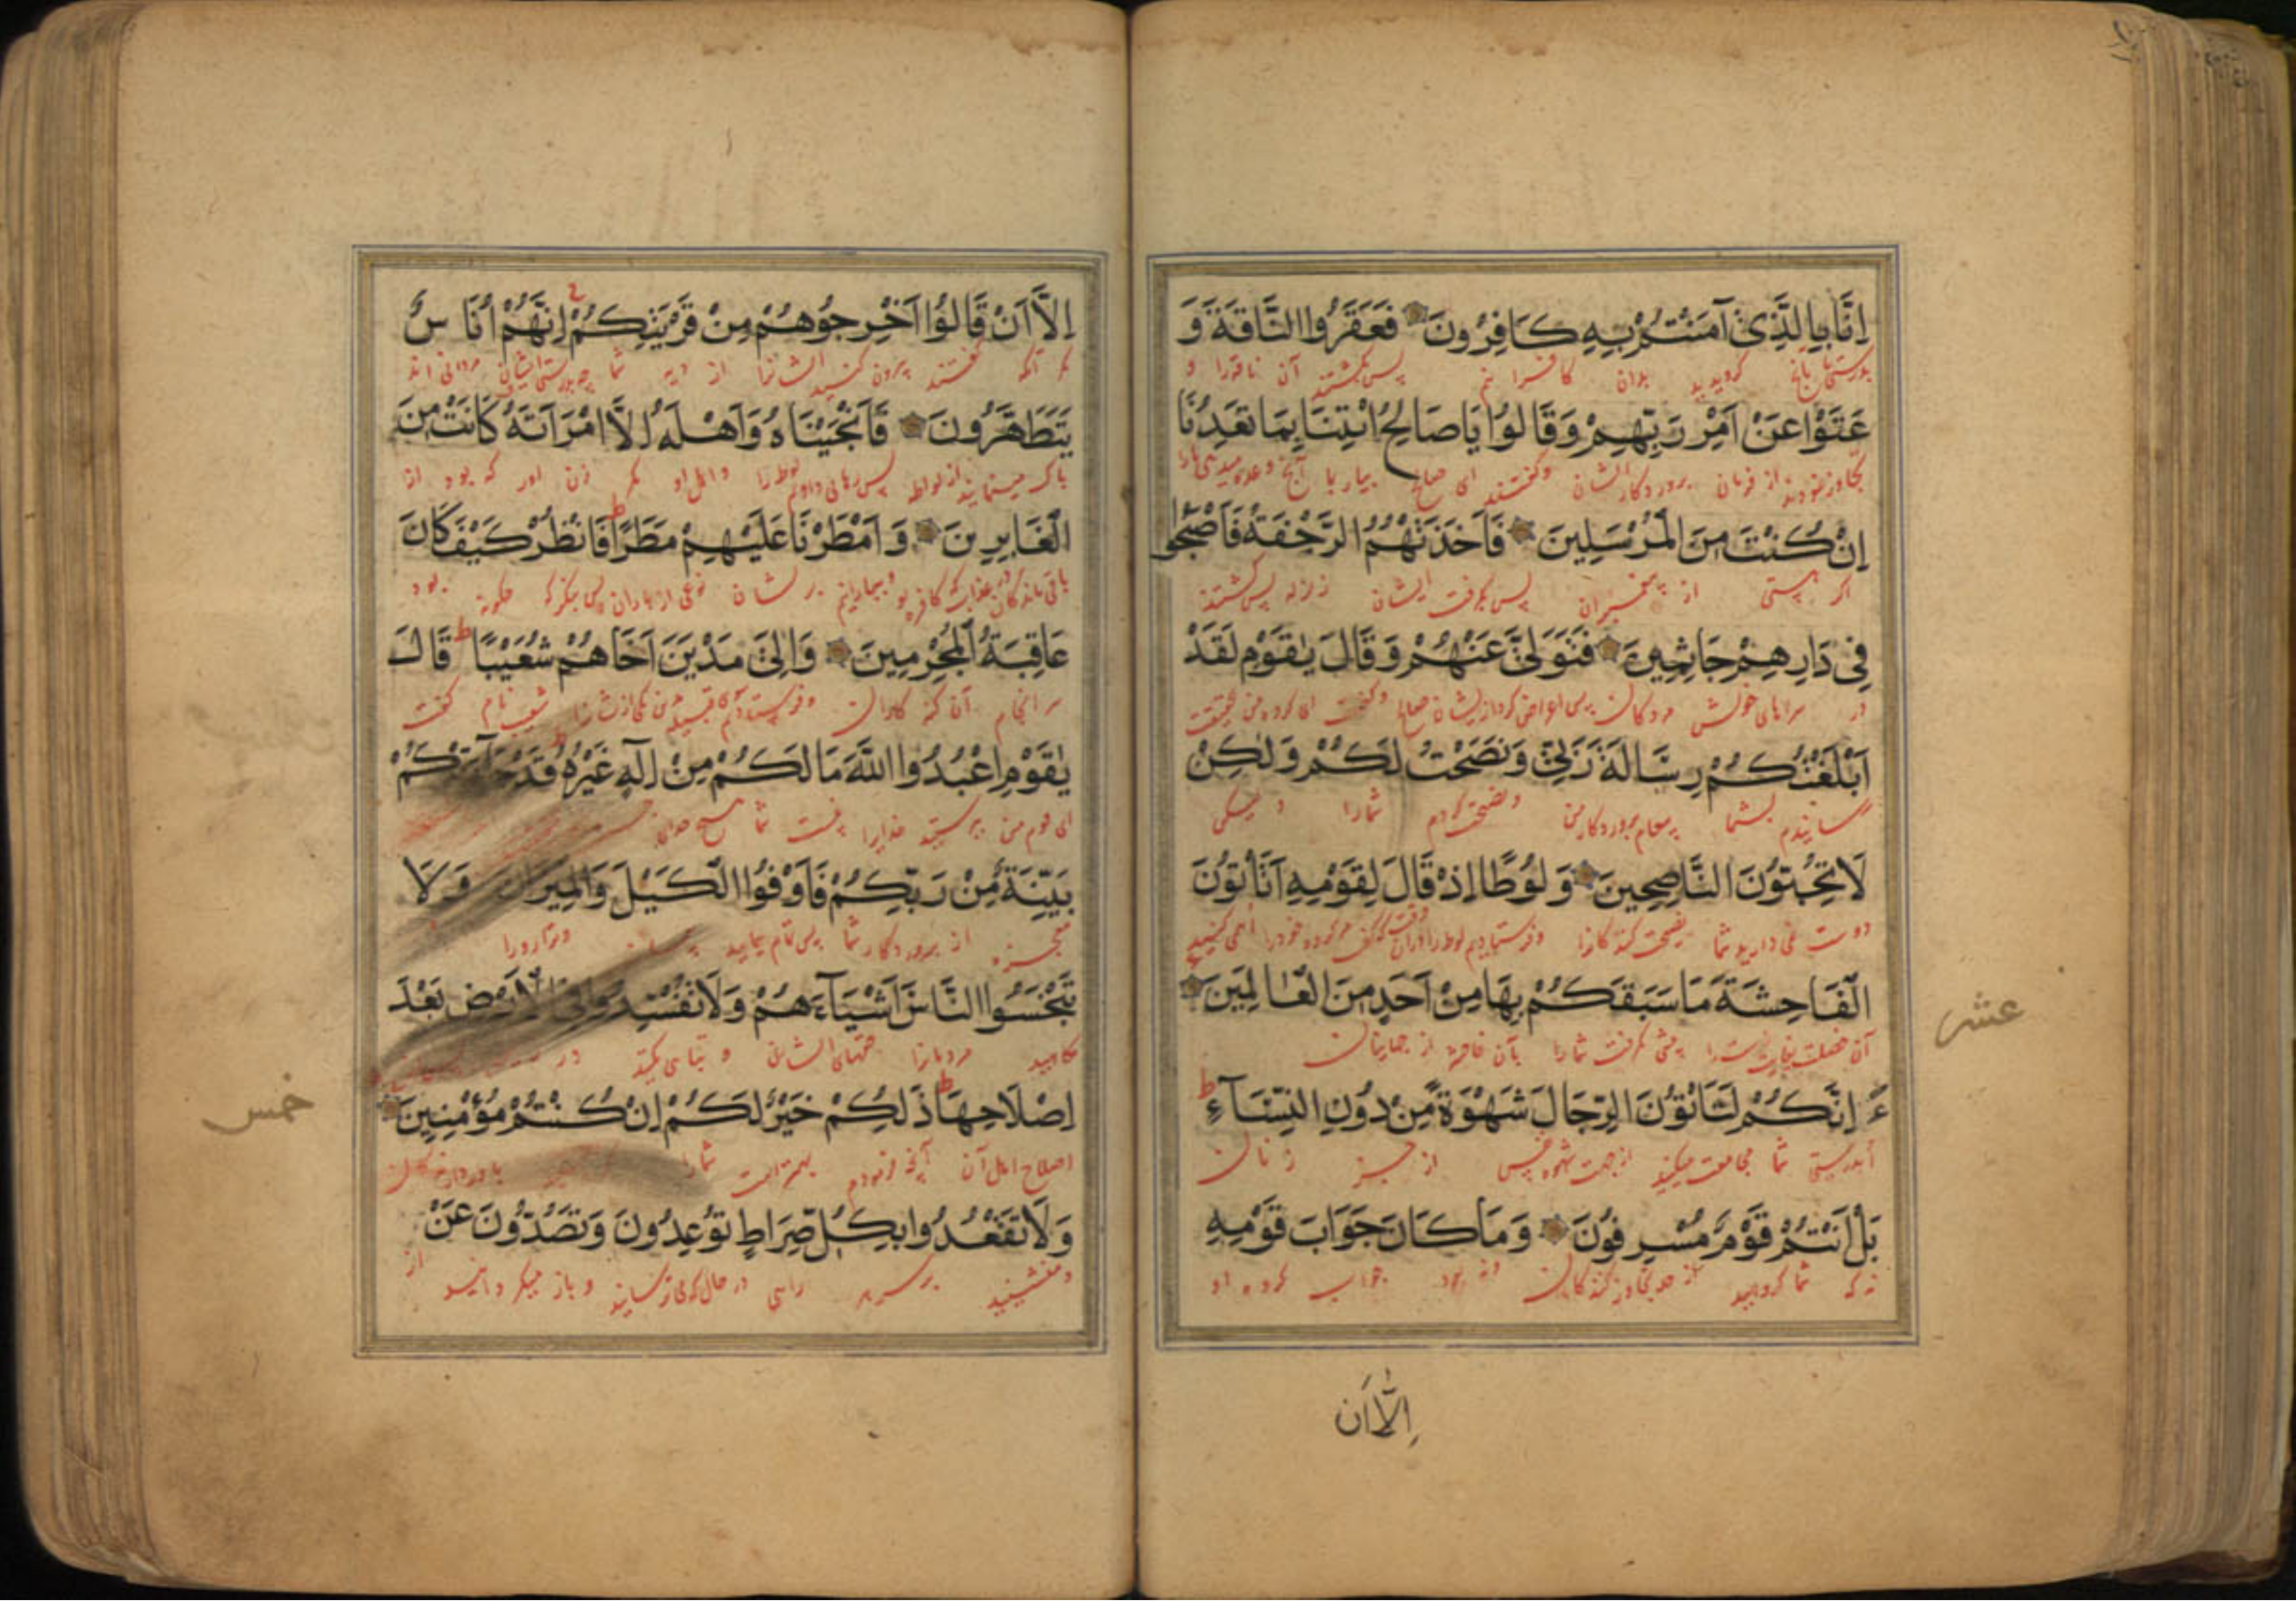 اِنَّا بِالَّذِیْ آمَنْتُمْ بِهِ كَافِرُونَ فَعَقَرُوا النَّاقَةَ وَ
بدرستی بآنچ گرویدید بدان کافرانیم پس بکشتند آن ناقه را و
عَتَوْا عَنْ اَمْرِ رَبِّهِمْ وَقَالُوا يَاصَالِحُ ائْتِنَا بِمَا تَعِدُنَا
تجاوز نمودند از فرمان پروردکار ایشان وکفتند ای صالح بیار بما آنچ وعده میدهی مارا
اِنْ كُنْتَ مِنَ الْمُرْسَلِينَ فَاَخَذَتْهُمُ الرَّجْفَةُ فَاَصْبَحُوا
اگر هستی از پیغمبران پس بگرفت ایشان زلزله پس کشتند
فِي دَارِهِمْ جَاثِمِينَ فَتَوَلّٰى عَنْهُمْ وَقَالَ يٰقَوْمِ لَقَدْ
در سراهای خویش مردکان پس اعراض کرد از ایشان صالح وکفت ای کروه من بحقیقت
اَبْلَغْتُكُمْ رِسَالَةَ رَبِّي وَنَصَحْتُ لَكُمْ وَلٰكِنْ
رسانیدم بشما پیغام پروردکار من ونصیحت کردم شمارا ولیکن
لَا تُحِبُّونَ النَّاصِحِينَ وَلُوطًا اِذْ قَالَ لِقَوْمِهِ اَتَأْتُونَ
دوست نمی دارید شما نصیحت کنندکانرا وفرستادیم لوط را
الْفَاحِشَةَ مَا سَبَقَكُمْ بِهَا مِنْ اَحَدٍ مِنَ الْعَالَمِينَ
آن خصلت پیشی نگرفت شمارا بآن فاحشه از جهانیان
عشر
ءَ اِنَّكُمْ لَتَأْتُونَ الرِّجَالَ شَهْوَةً مِنْ دُونِ النِّسَآءِ ط
آبدرستی شما مجامعت میکنید از جهت شهوه نفس از جز زنان
بَلْ اَنْتُمْ قَوْمٌ مُسْرِفُونَ وَمَا كَانَ جَوَابَ قَوْمِهِ
نه که شما کروهید از حد تجاوز کنندکان ونه بود جواب کروه او
اِلَّا اَن
اِلَّا اَنْ قَالُوا اَخْرِجُوهُمْ مِنْ قَرْيَتِكُمْ اِنَّهُمْ اُنَاسٌ
مکر آنکه کفتند بیرون کنید ایشانرا از دیه شما بدرستی ایشان مردانی اند
يَتَطَهَّرُونَ فَاَنْجَيْنَاهُ وَاَهْلَهُ اِلَّا امْرَاَتَهُ كَانَتْ مِنَ
پاک مینمایند از لواطه پس رهانی دادیم لوط را واهل او مکر زن اورا که بود از
الْغَابِرِينَ وَاَمْطَرْنَا عَلَيْهِمْ مَطَرًا ط فَانْظُرْ كَيْفَ كَانَ
باقی ماندکان در عذاب وبیارانیدیم بر ایشان نوعی از باران پس بنکر که چکونه بود
عَاقِبَةُ الْمُجْرِمِينَ وَاِلٰى مَدْيَنَ اَخَاهُمْ شُعَيْبًا ط قَالَ
سرانجام آن کنه کاران وفرستادیم شعیب نام کفت
يٰقَوْمِ اعْبُدُوا اللّٰهَ مَا لَكُمْ مِنْ اِلٰهٍ غَيْرُهُ قَدْ جَآءَتْكُمْ
ای قوم من بپرستید خدایرا نیست شما هیچ خدای
بَيِّنَةٌ مِنْ رَبِّكُمْ فَاَوْفُوا الْكَيْلَ وَالْمِيزَانَ وَلَا
معجزه از پروردکار شما پس تمام پیمایید وترازورا
تَبْخَسُوا النَّاسَ اَشْيَآءَهُمْ وَلَا تُفْسِدُوا فِي الْاَرْضِ بَعْدَ
مکاهید مردمانرا حقهای ایشان و تباهی مکنید در
اِصْلَاحِهَا ط ذٰلِكُمْ خَيْرٌ لَكُمْ اِنْ كُنْتُمْ مُؤْمِنِينَ
اصلاح اهل آن آنچه فرمودم بهتر است شمارا
خمس
وَلَا تَقْعُدُوا بِكُلِّ صِرَاطٍ تُوعِدُونَ وَتَصُدُّونَ عَنْ
ومنشینید بر سر هر راهی در حالی که می ترسانید وباز میکردانید از